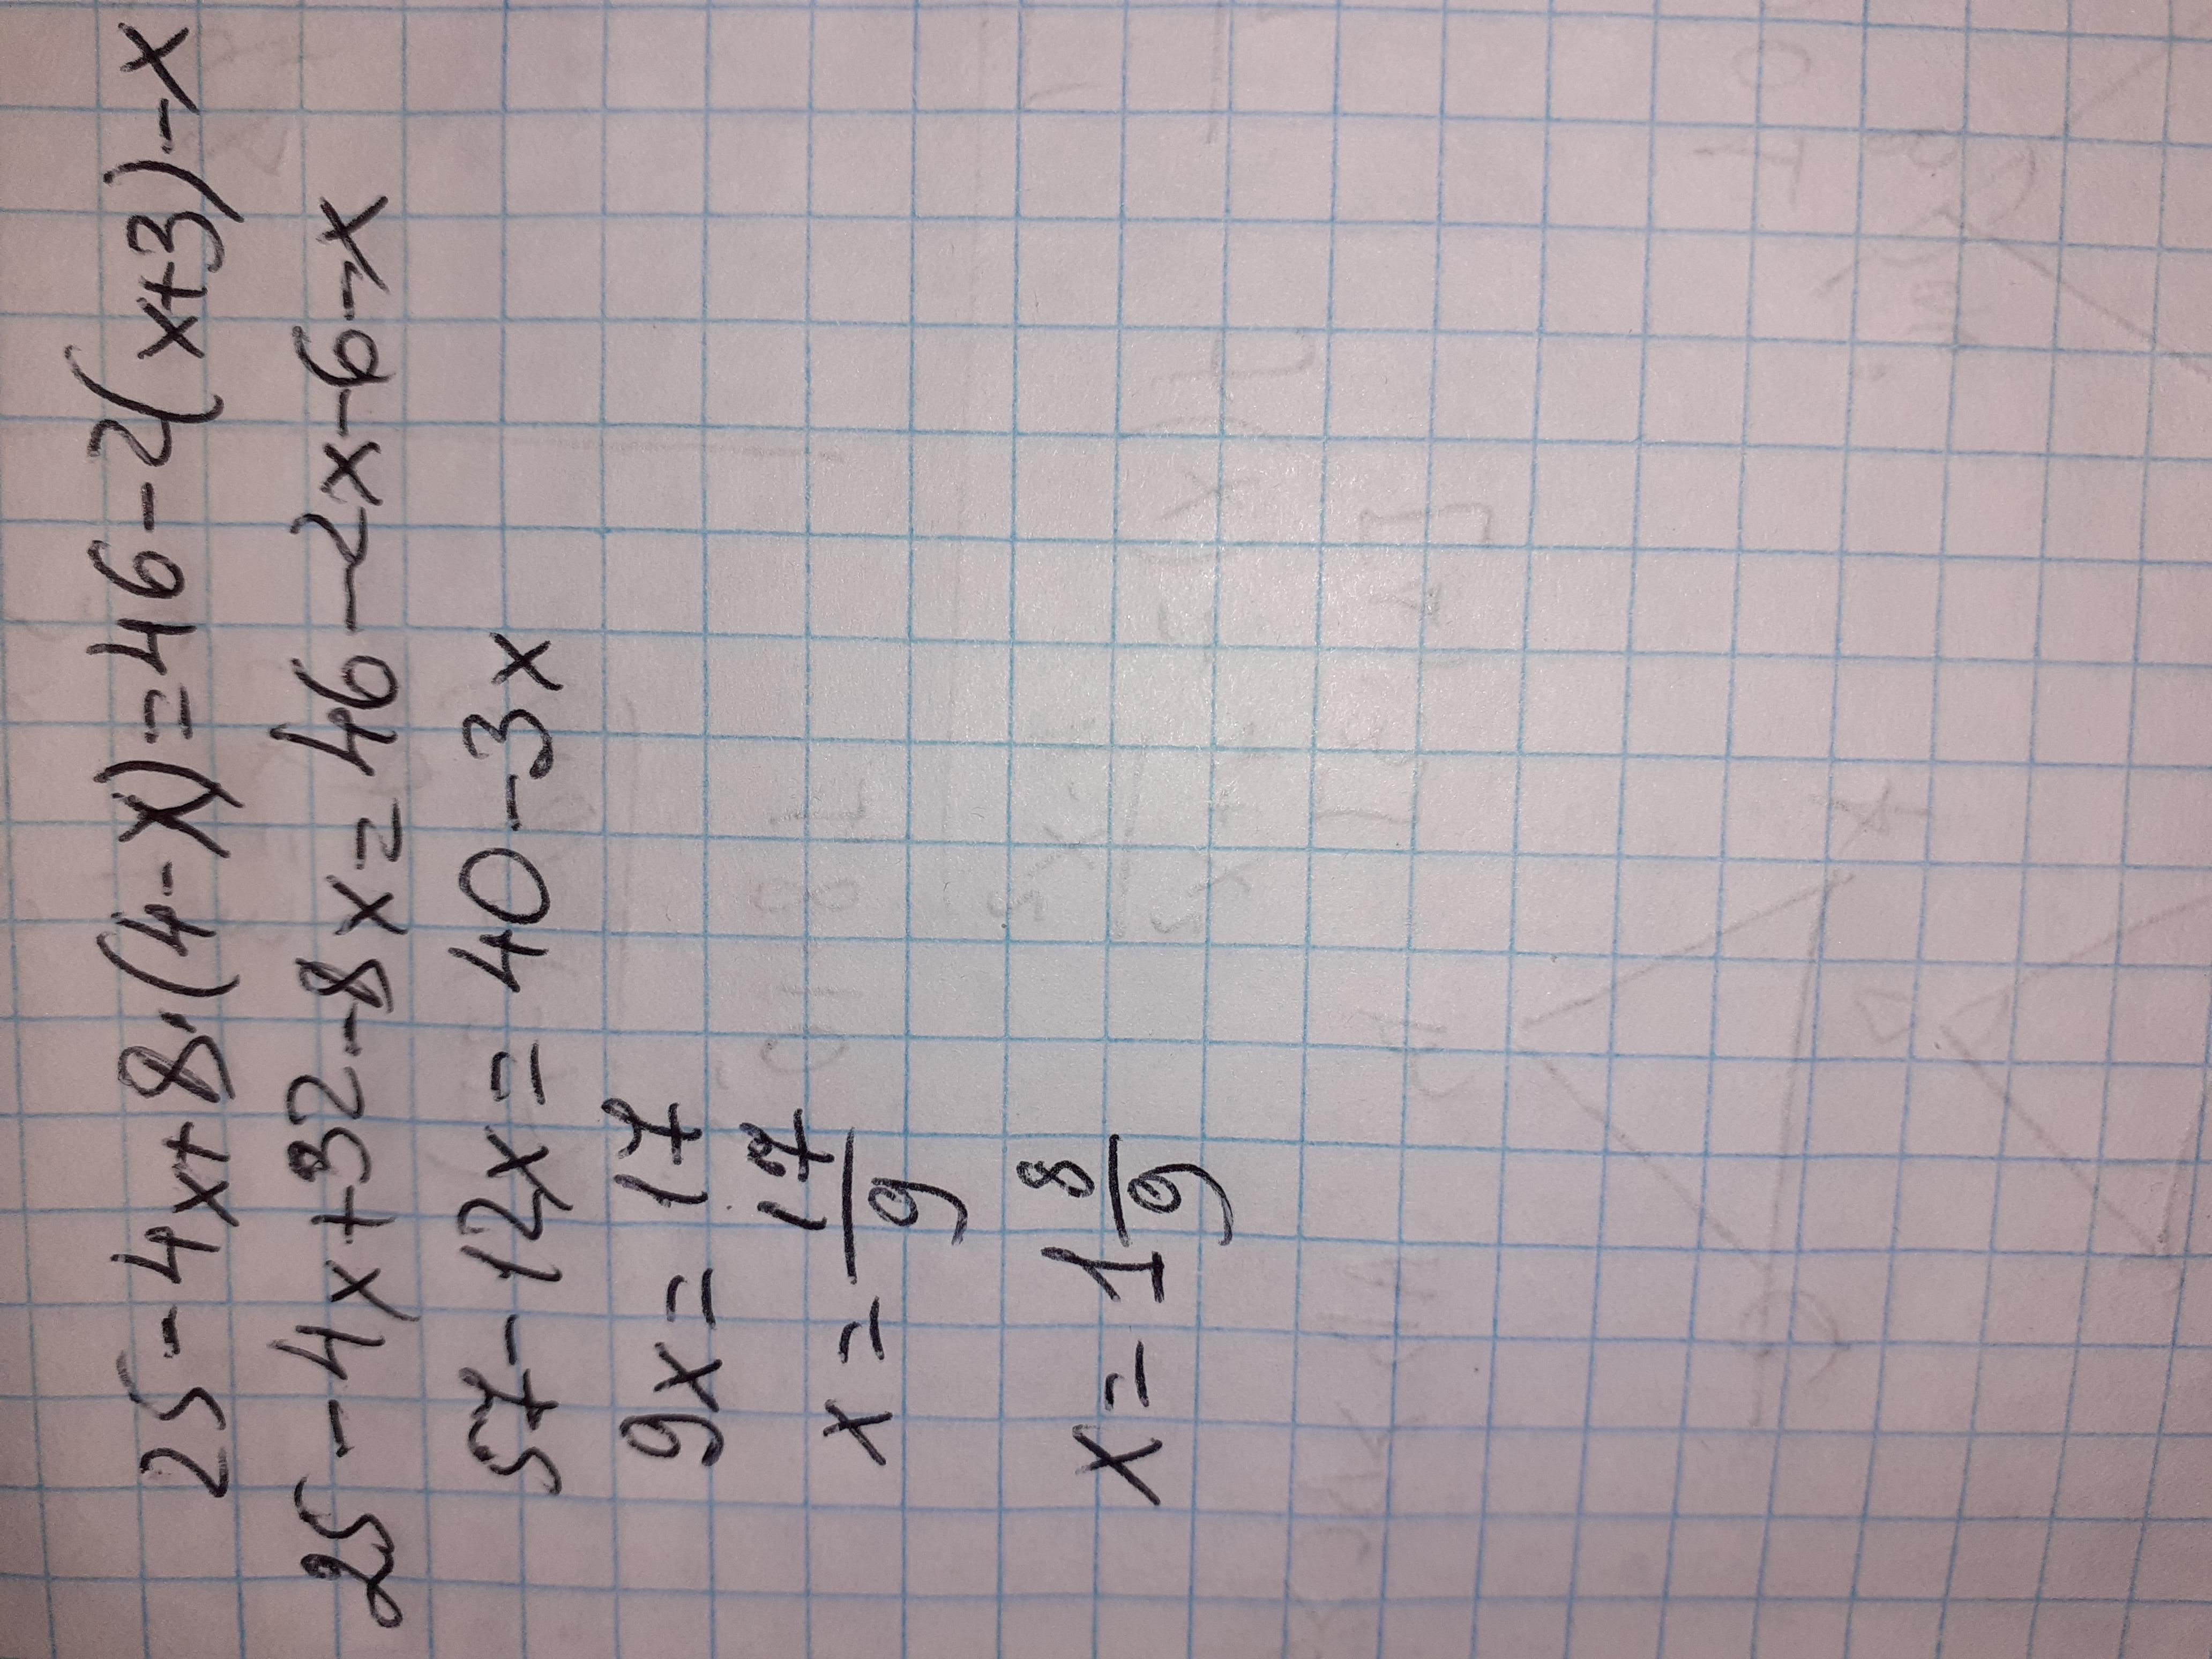 25-4x+8·(4-x)=46-2(x+3)-x
25-4x+32-8x=46-2x-6-x
57-12x=40-3x
9x=17
x=17/9
x=1 8/9